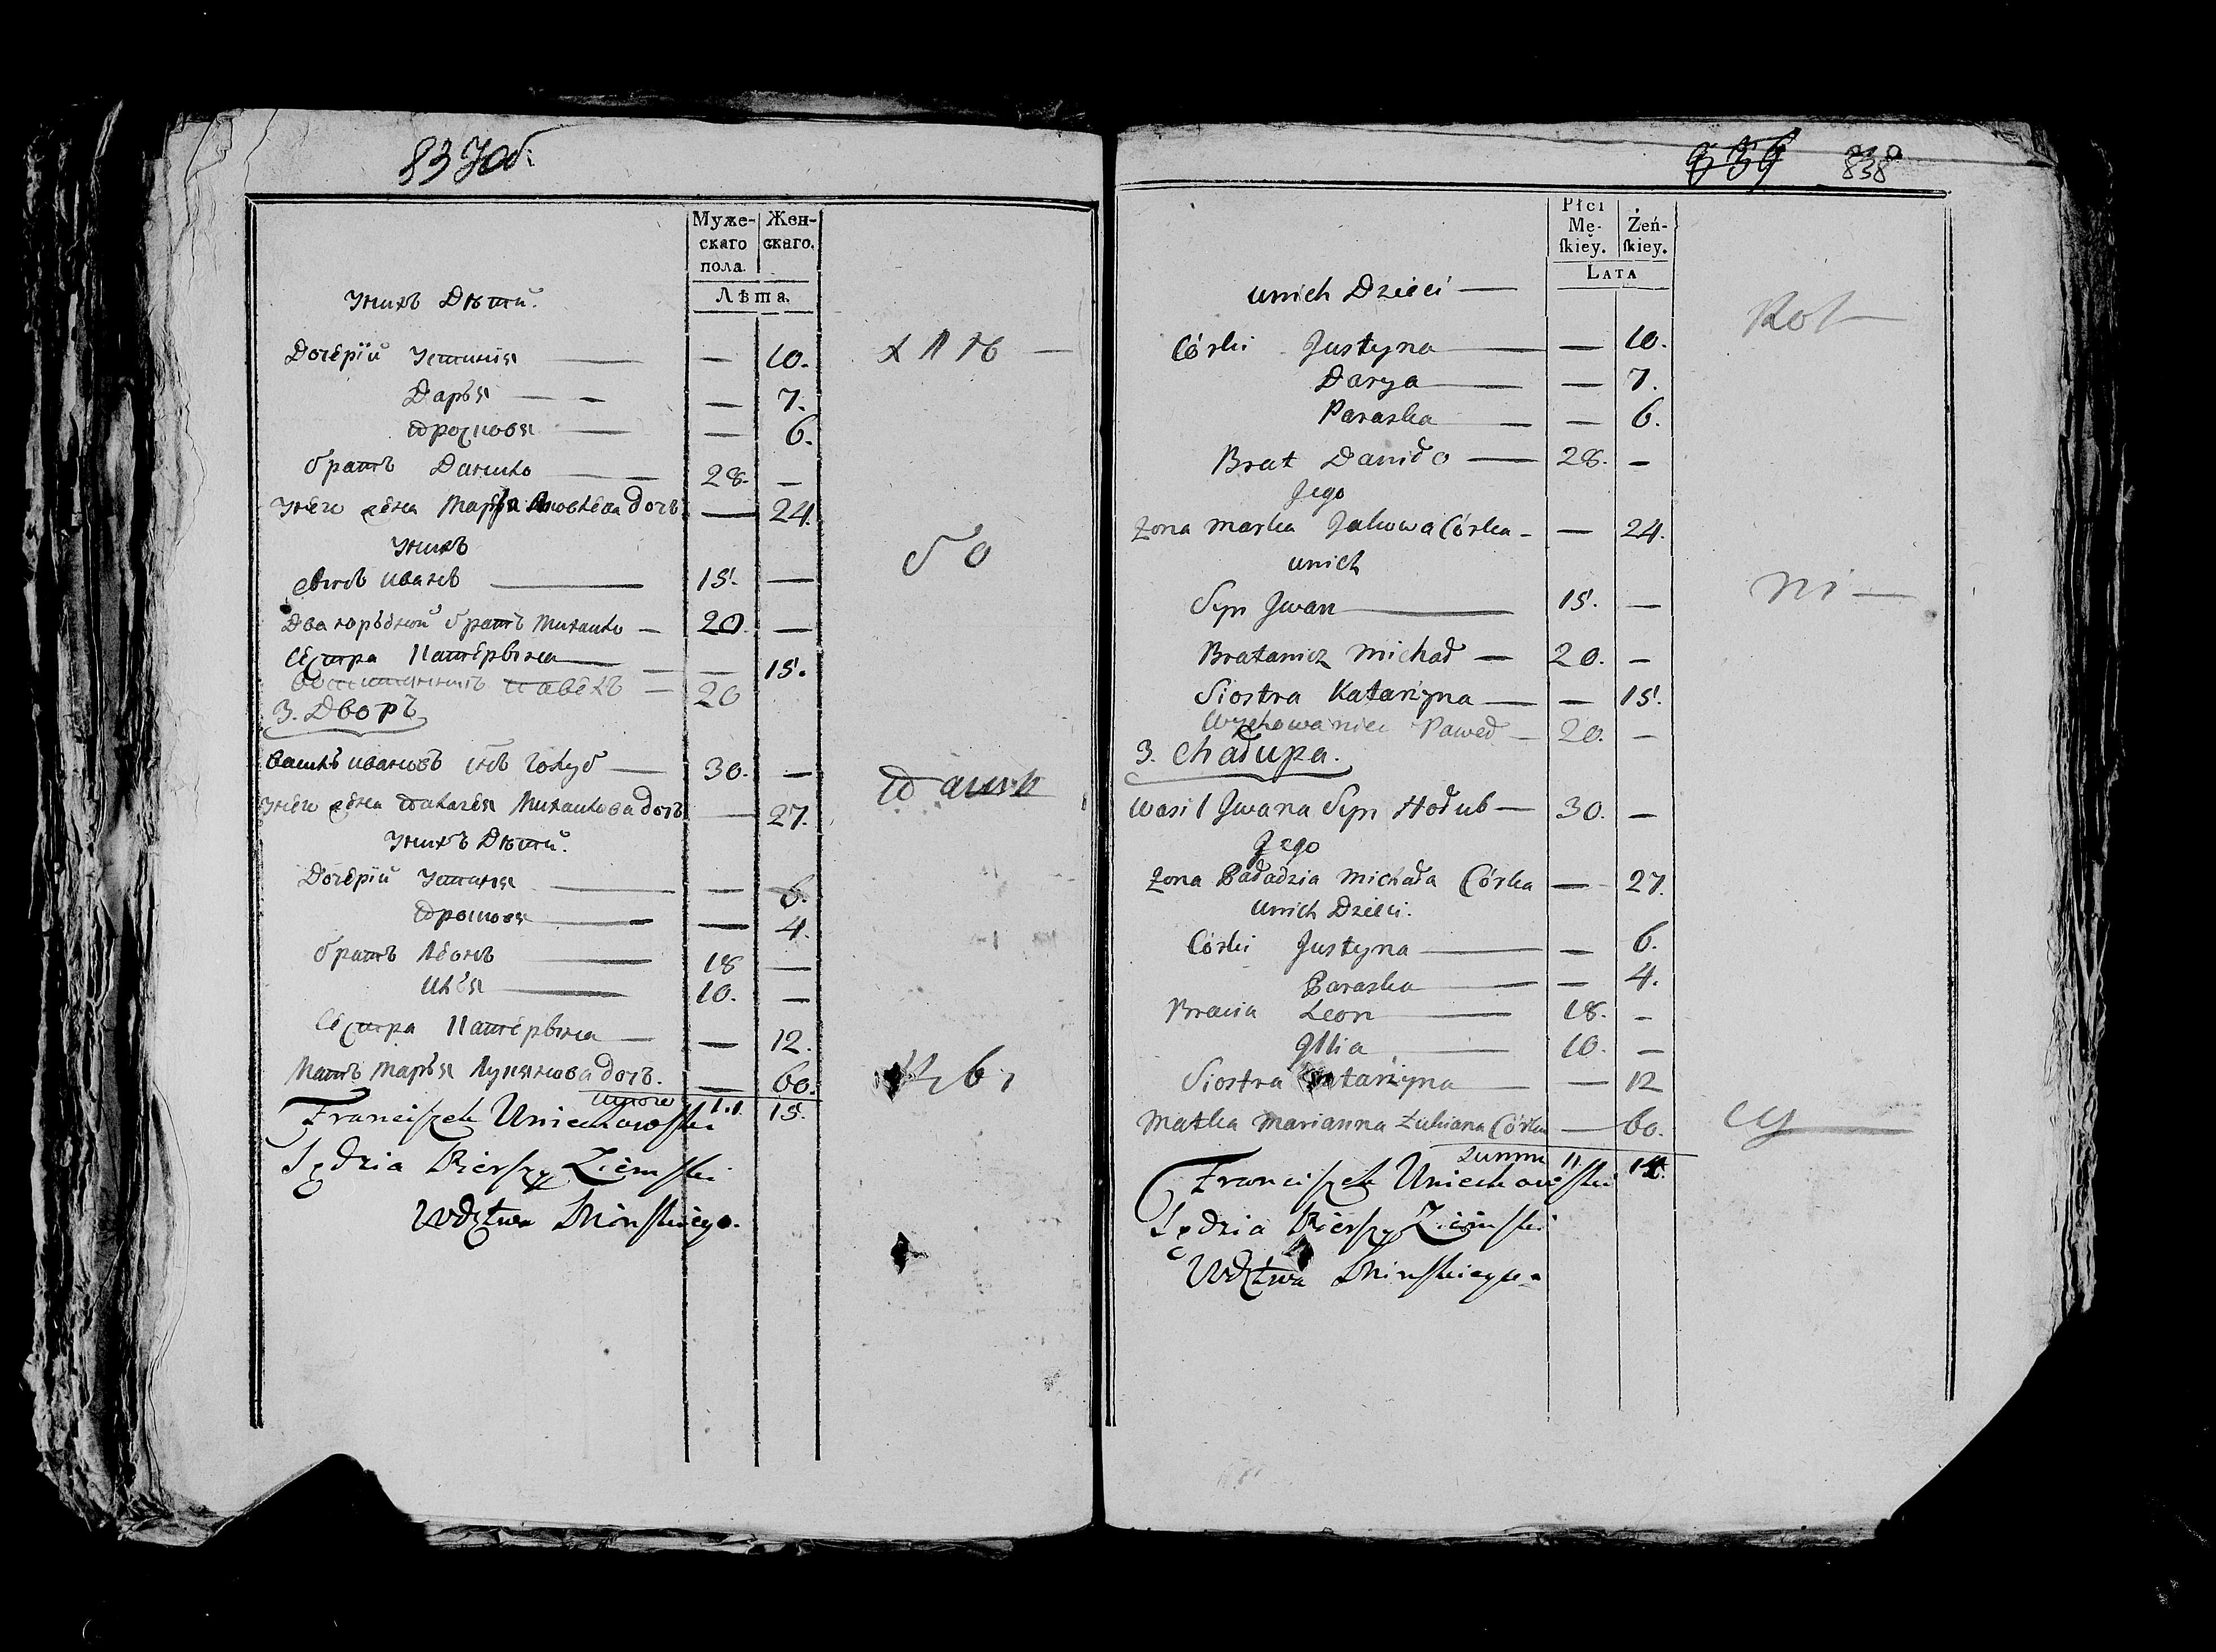 837 об.
Муже-
скаго
пола.
Жен-
скаго.
Лѣта.
Унихъ Дѣтй.
Дочерїй Устинїя — — 10.
Дарья — — 7.
— 6.
братъ Данило — 28. —
Унего жена Марья дочь — 24.
Унихъ
сынъ иванъ — 15. —
Дваюрѣдной братъ Михайло — 20. —
Сестра Катерына — — 15.
павелъ — 20
3. Дворъ
василь ивановъ снъ Голуб — 30. —
Унего жена Михайлова дочь — 27.
Унихъ Дѣтй.
Дочерїй Устиня — — 6.
— 4.
братъ Леонъ — 18 —
Илья — 10. —
Сестра Катерына — — 12.
Мать Марья Лукянова дочь. — 60.
Итого 11. 15.
Franciszek Uniechowski
Sędzia Pierszy Ziemski
Wdztwa Mińskiego.
838
Płci
Mę-
ſkiey.
Żeń-
ſkiey.
LATA
unich Dzieci —
Córki Justyna — — 10.
Darya — — 7.
Paraska — — 6.
Brat Daniło — 28. —
Jego
żona Marka Jakowa Córka — — 24.
unich
Syn Jwan — 15. —
Bratanicz Michał — 20. —
Siostra Katarzyna — — 15.
Wychowaniec Paweł — 20. —
3. Chałupa.
Wasil Jwana Syn Hołub — 30. —
Jego
żona Paładzia Michała Córka — — 27.
unich Dzieci.
Córki Justyna — — 6.
Paraska — — 4.
Bracia Leon — 18. —
Jllia — 10. —
Siostra Katarzyna — — 12
Matka Marianna Łukiana Córka — 60.
Summa 11.
Franciszek Uniechowski
Sędzia Pierszy Ziemski
Wdztwa Mińskiego